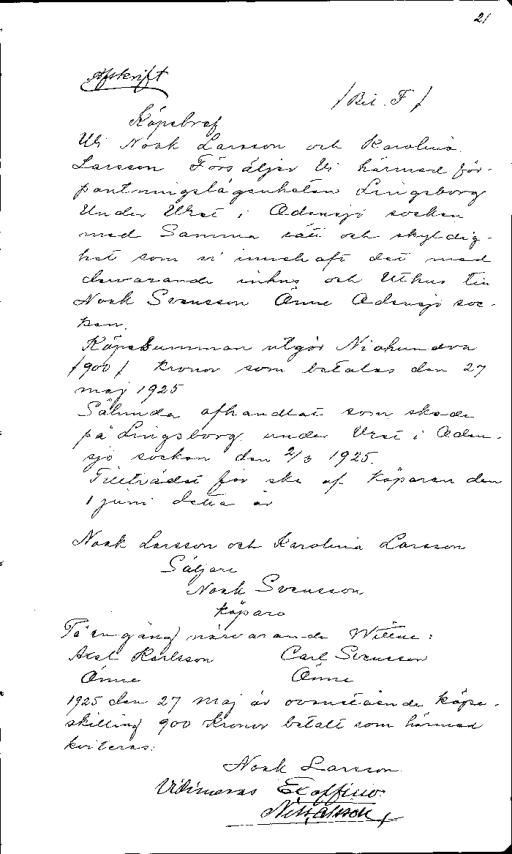 21
Afskrift
/Bil. F/
Köpebref
Vi Noak Larsson och Karolina
Larsson Försäljer Vi härmed för-
pantningslägenheten Lingsborg
Under Uret i Odensjö socken
med Samma rätt och skyldig-
het som vi innehaft det med
devarande inhus och Uthus till
Noak Svensson Änne Odensjö soc-
ken.
Köpesumman utgör Niohundra
/900/ kronor som betalas den 27
maj 1925
Sålunda afhandlat som skede
på Lingsborg under Uret i Oden-
sjö socken den 2/3 1925.
Tillträdet får ske af köparen den
1 juni detta år
Noak Larsson och Karolina Larsson
Säljare
Noak Svensson
köpare
På en gång närvarande Wittne:
Axel Karlsson Carl Svensson
Änne Änne
1925 den 27 maj är ovanstående köpe-
skilling 900 kronor betalt som härmed
kviteras:
Noak Larsson
Vidimeras Ex officio: